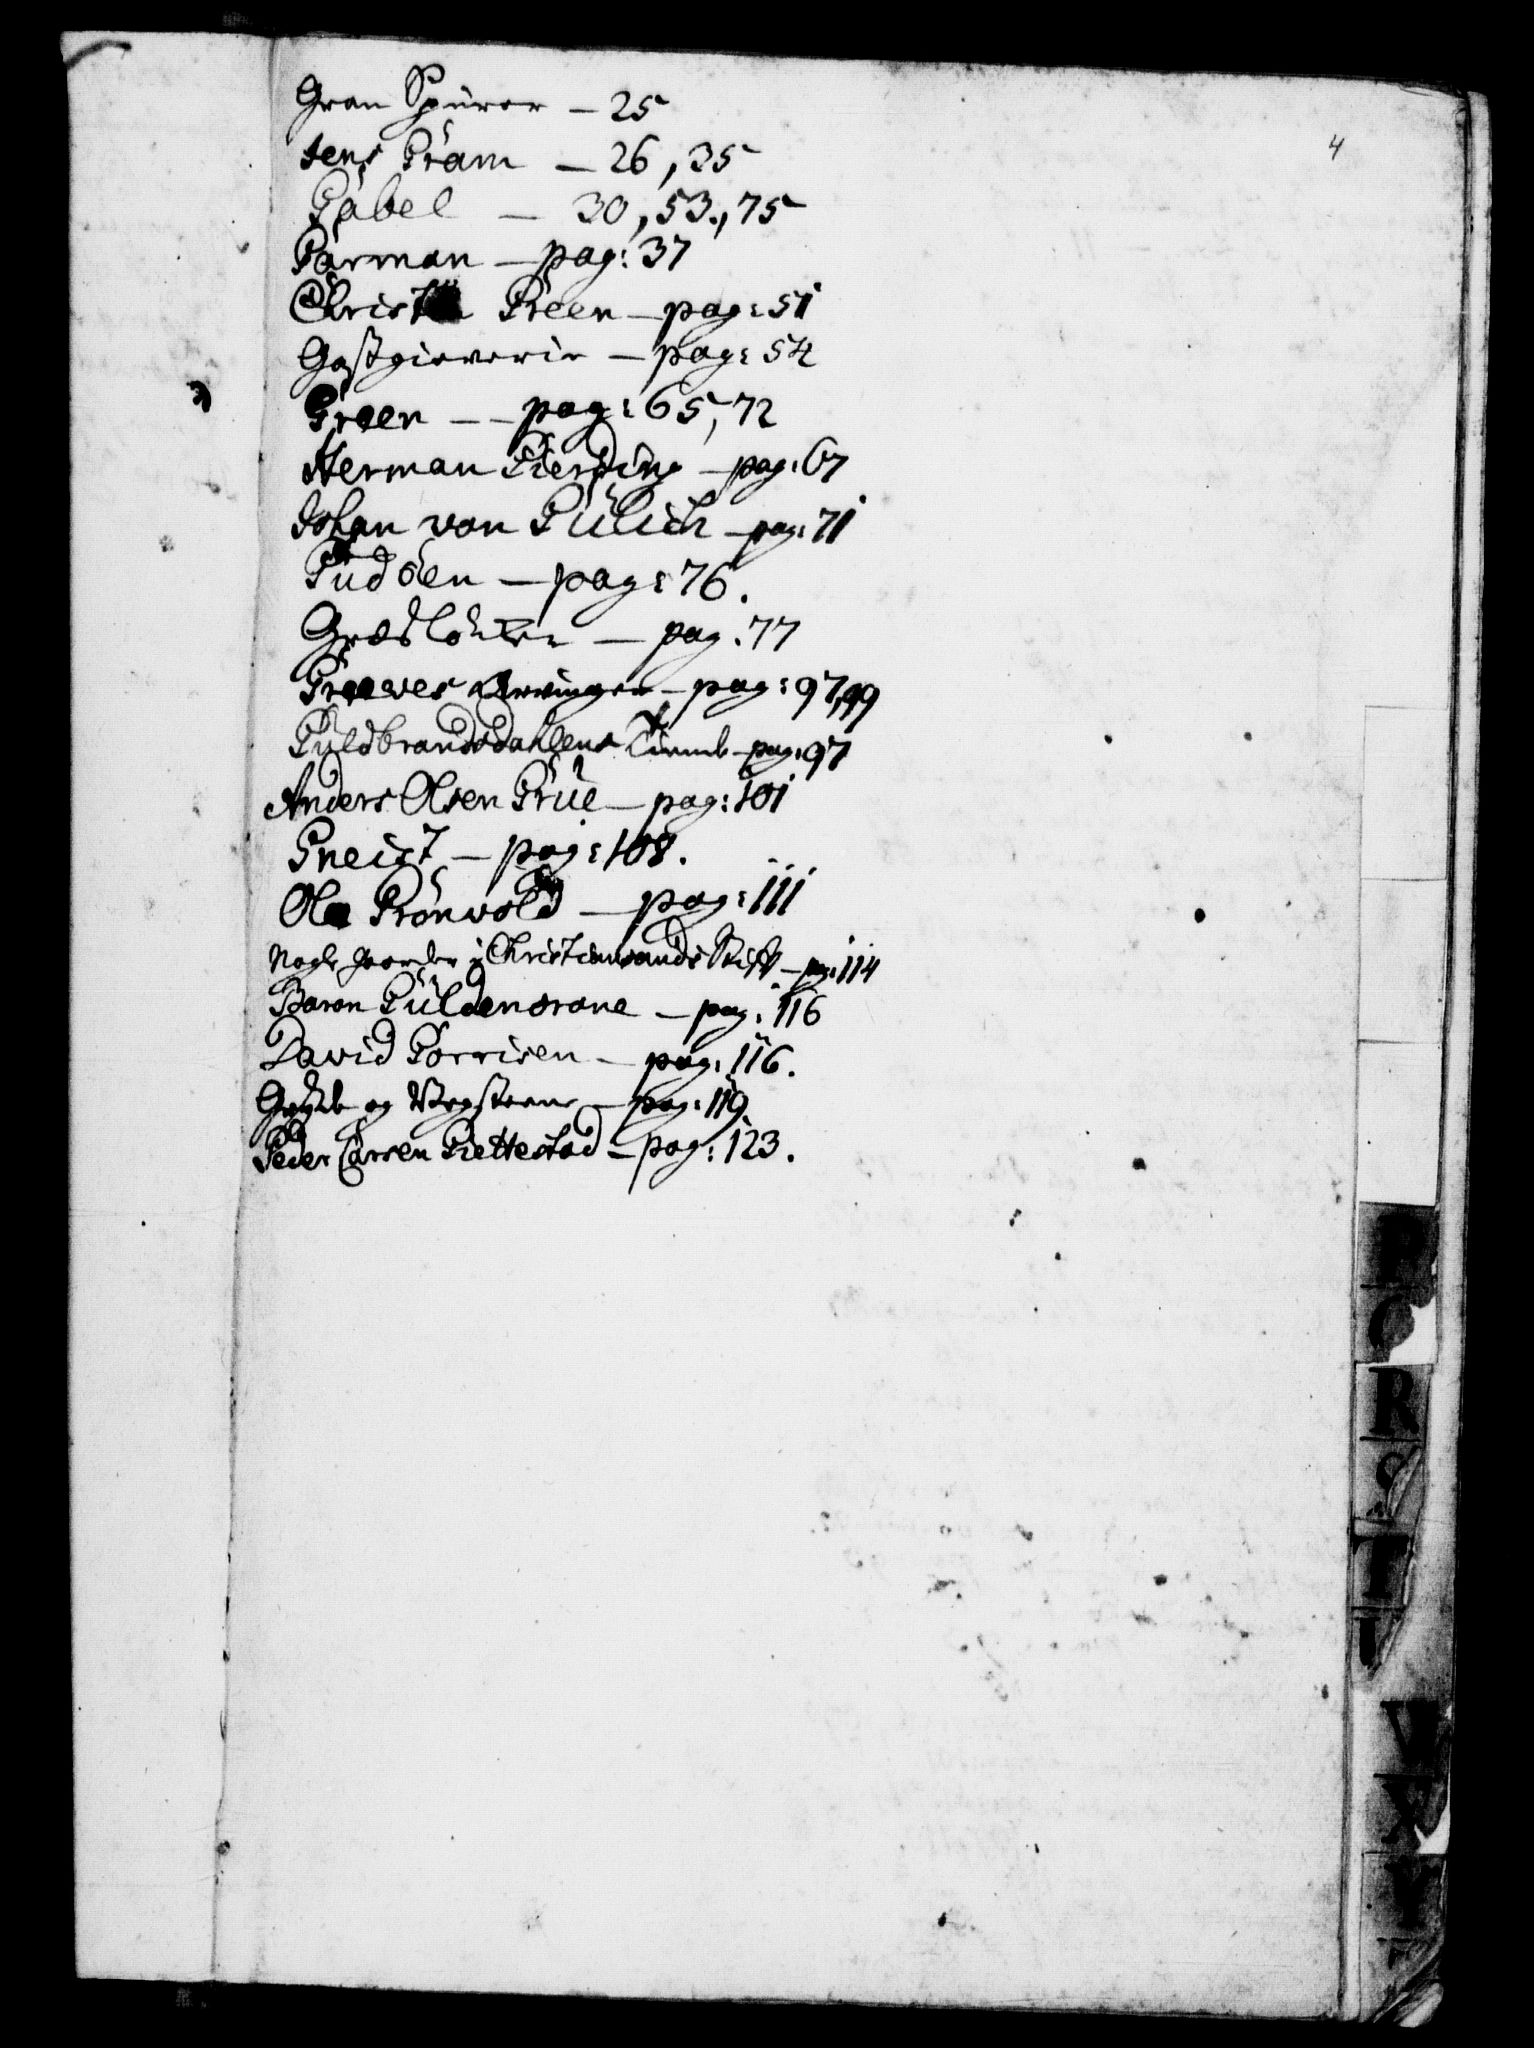 4
Gran Spürer — 25
Jens Gram — 26, 35
Gabel — 30, 53., 75
Garman — pag: 37
Christen Green — pag: 51
Gastgieverie — pag: 54
Green — pag: 65, 72
Herman Gierding — pag: 67
Johan von Gülich — pag: 71
Gudöen — pag: 76.
Græsløcken — pag: 77
Greeves Arvinger — pag: 97, 99
Guldbrandsdahlens Tiende — pag: 97
Anders Olsen Grüe — pag: 101
Gneist — pag: 108.
Ole Grönvold — pag: 111
Nogle gaarder i Christiansands Stift — pag: 114
Baron Güldencrone — pag: 116
David Gorrisen — pag: 116.
Gryde og Vegsteene — pag: 119
Peder Carsen Giettestad — pag: 123.
P
Q
R
S
T
U
W
X
Y